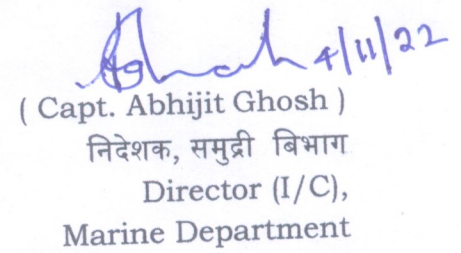 4/11/22
( Capt. Abhijit Ghosh )
निदेशक, समुद्री बिभाग
Director (I/C),
Marine Department